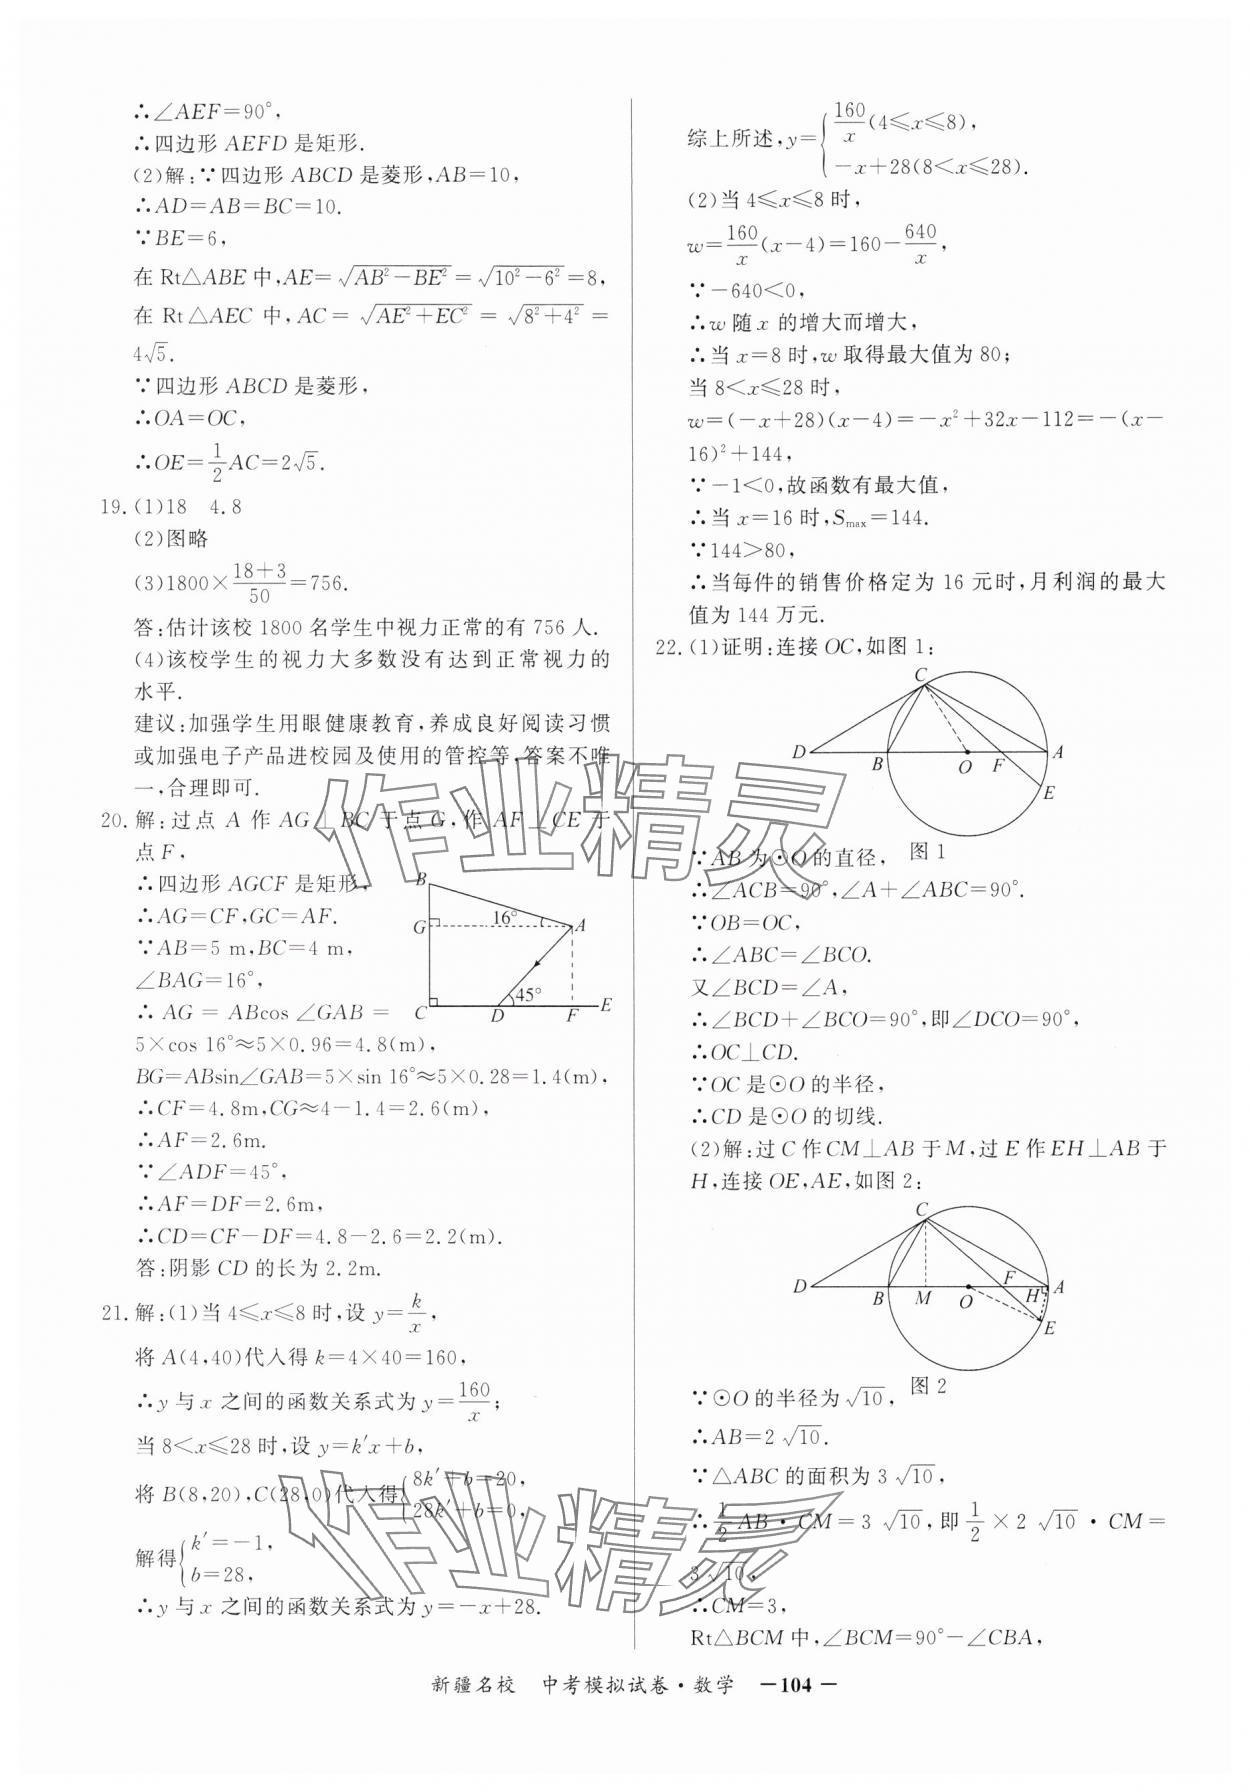 ∴∠AEF=90°,
∴四边形 AEFD 是矩形.
(2)解:∵四边形 ABCD 是菱形,AB=10,
∴AD=AB=BC=10.
∵BE=6,
在 Rt△ABE 中,AE=√(AB²-BE²)=√(10²-6²)=8,
在 Rt△AEC 中,AC=√(AE²+EC²)=√(8²+4²)=
4√5.
∵四边形 ABCD 是菱形,
∴OA=OC,
∴OE=1/2 AC=2√5.
19.(1)18 4.8
(2)图略
(3)1800×(18+3)/50=756.
答:估计该校 1800 名学生中视力正常的有 756 人.
(4)该校学生的视力大多数没有达到正常视力的
水平.
建议:加强学生用眼健康教育,养成良好阅读习惯
或加强电子产品进校园及使用的管控等,答案不唯
一,合理即可.
20.解:过点 A 作 AG⊥BC 于点 G,作 AF⊥CE 于
点 F,
∴四边形 AGCF 是矩形,
∴AG=CF,GC=AF.
∵AB=5 m,BC=4 m,
∠BAG=16°,
∴ AG = ABcos ∠GAB =
5×cos 16°≈5×0.96=4.8(m),
BG=ABsin∠GAB=5×sin 16°≈5×0.28=1.4(m),
∴CF=4.8m,CG≈4-1.4=2.6(m),
∴AF=2.6m.
∵∠ADF=45°,
∴AF=DF=2.6m,
∴CD=CF-DF=4.8-2.6=2.2(m).
答:阴影 CD 的长为 2.2m.
B
G
16°
A
45°
C
D
F
E
21.解:(1)当 4≤x≤8 时,设 y=k/x,
将 A(4,40)代入得 k=4×40=160,
∴y 与 x 之间的函数关系式为 y=160/x;
当 8<x≤28 时,设 y=k′x+b,
将 B(8,20),C(28,0)代入得{8k′+b=20,
28k′+b=0,
解得{k′=-1,
b=28,
∴y 与 x 之间的函数关系式为 y=-x+28.
综上所述,y={160/x(4≤x≤8),
-x+28(8<x≤28).
(2)当 4≤x≤8 时,
w=160/x(x-4)=160-640/x,
∵-640<0,
∴w 随 x 的增大而增大,
∴当 x=8 时,w 取得最大值为 80;
当 8<x≤28 时,
w=(-x+28)(x-4)=-x²+32x-112=-(x-
16)²+144,
∵-1<0,故函数有最大值,
∴当 x=16 时,Smax=144.
∵144>80,
∴当每件的销售价格定为 16 元时,月利润的最大
值为 144 万元.
22.(1)证明:连接 OC,如图 1:
C
D
B
O
F
A
E
图 1
∵AB 为⊙O的直径,
∴∠ACB=90°,∠A+∠ABC=90°.
∵OB=OC,
∴∠ABC=∠BCO.
又∠BCD=∠A,
∴∠BCD+∠BCO=90°,即∠DCO=90°,
∴OC⊥CD.
∵OC 是⊙O 的半径,
∴CD 是⊙O 的切线.
(2)解:过 C 作 CM⊥AB 于 M,过 E 作 EH⊥AB 于
H,连接 OE,AE,如图 2:
C
D
B
M
O
F
H
A
E
图 2
∵⊙O 的半径为√10,
∴AB=2√10.
∵△ABC 的面积为 3√10,
∴1/2 AB·CM=3√10,即1/2×2√10·CM=
3√10,
∴CM=3,
Rt△BCM 中,∠BCM=90°-∠CBA,
新疆名校 中考模拟试卷·数学 —104—
作业精灵
作业精灵